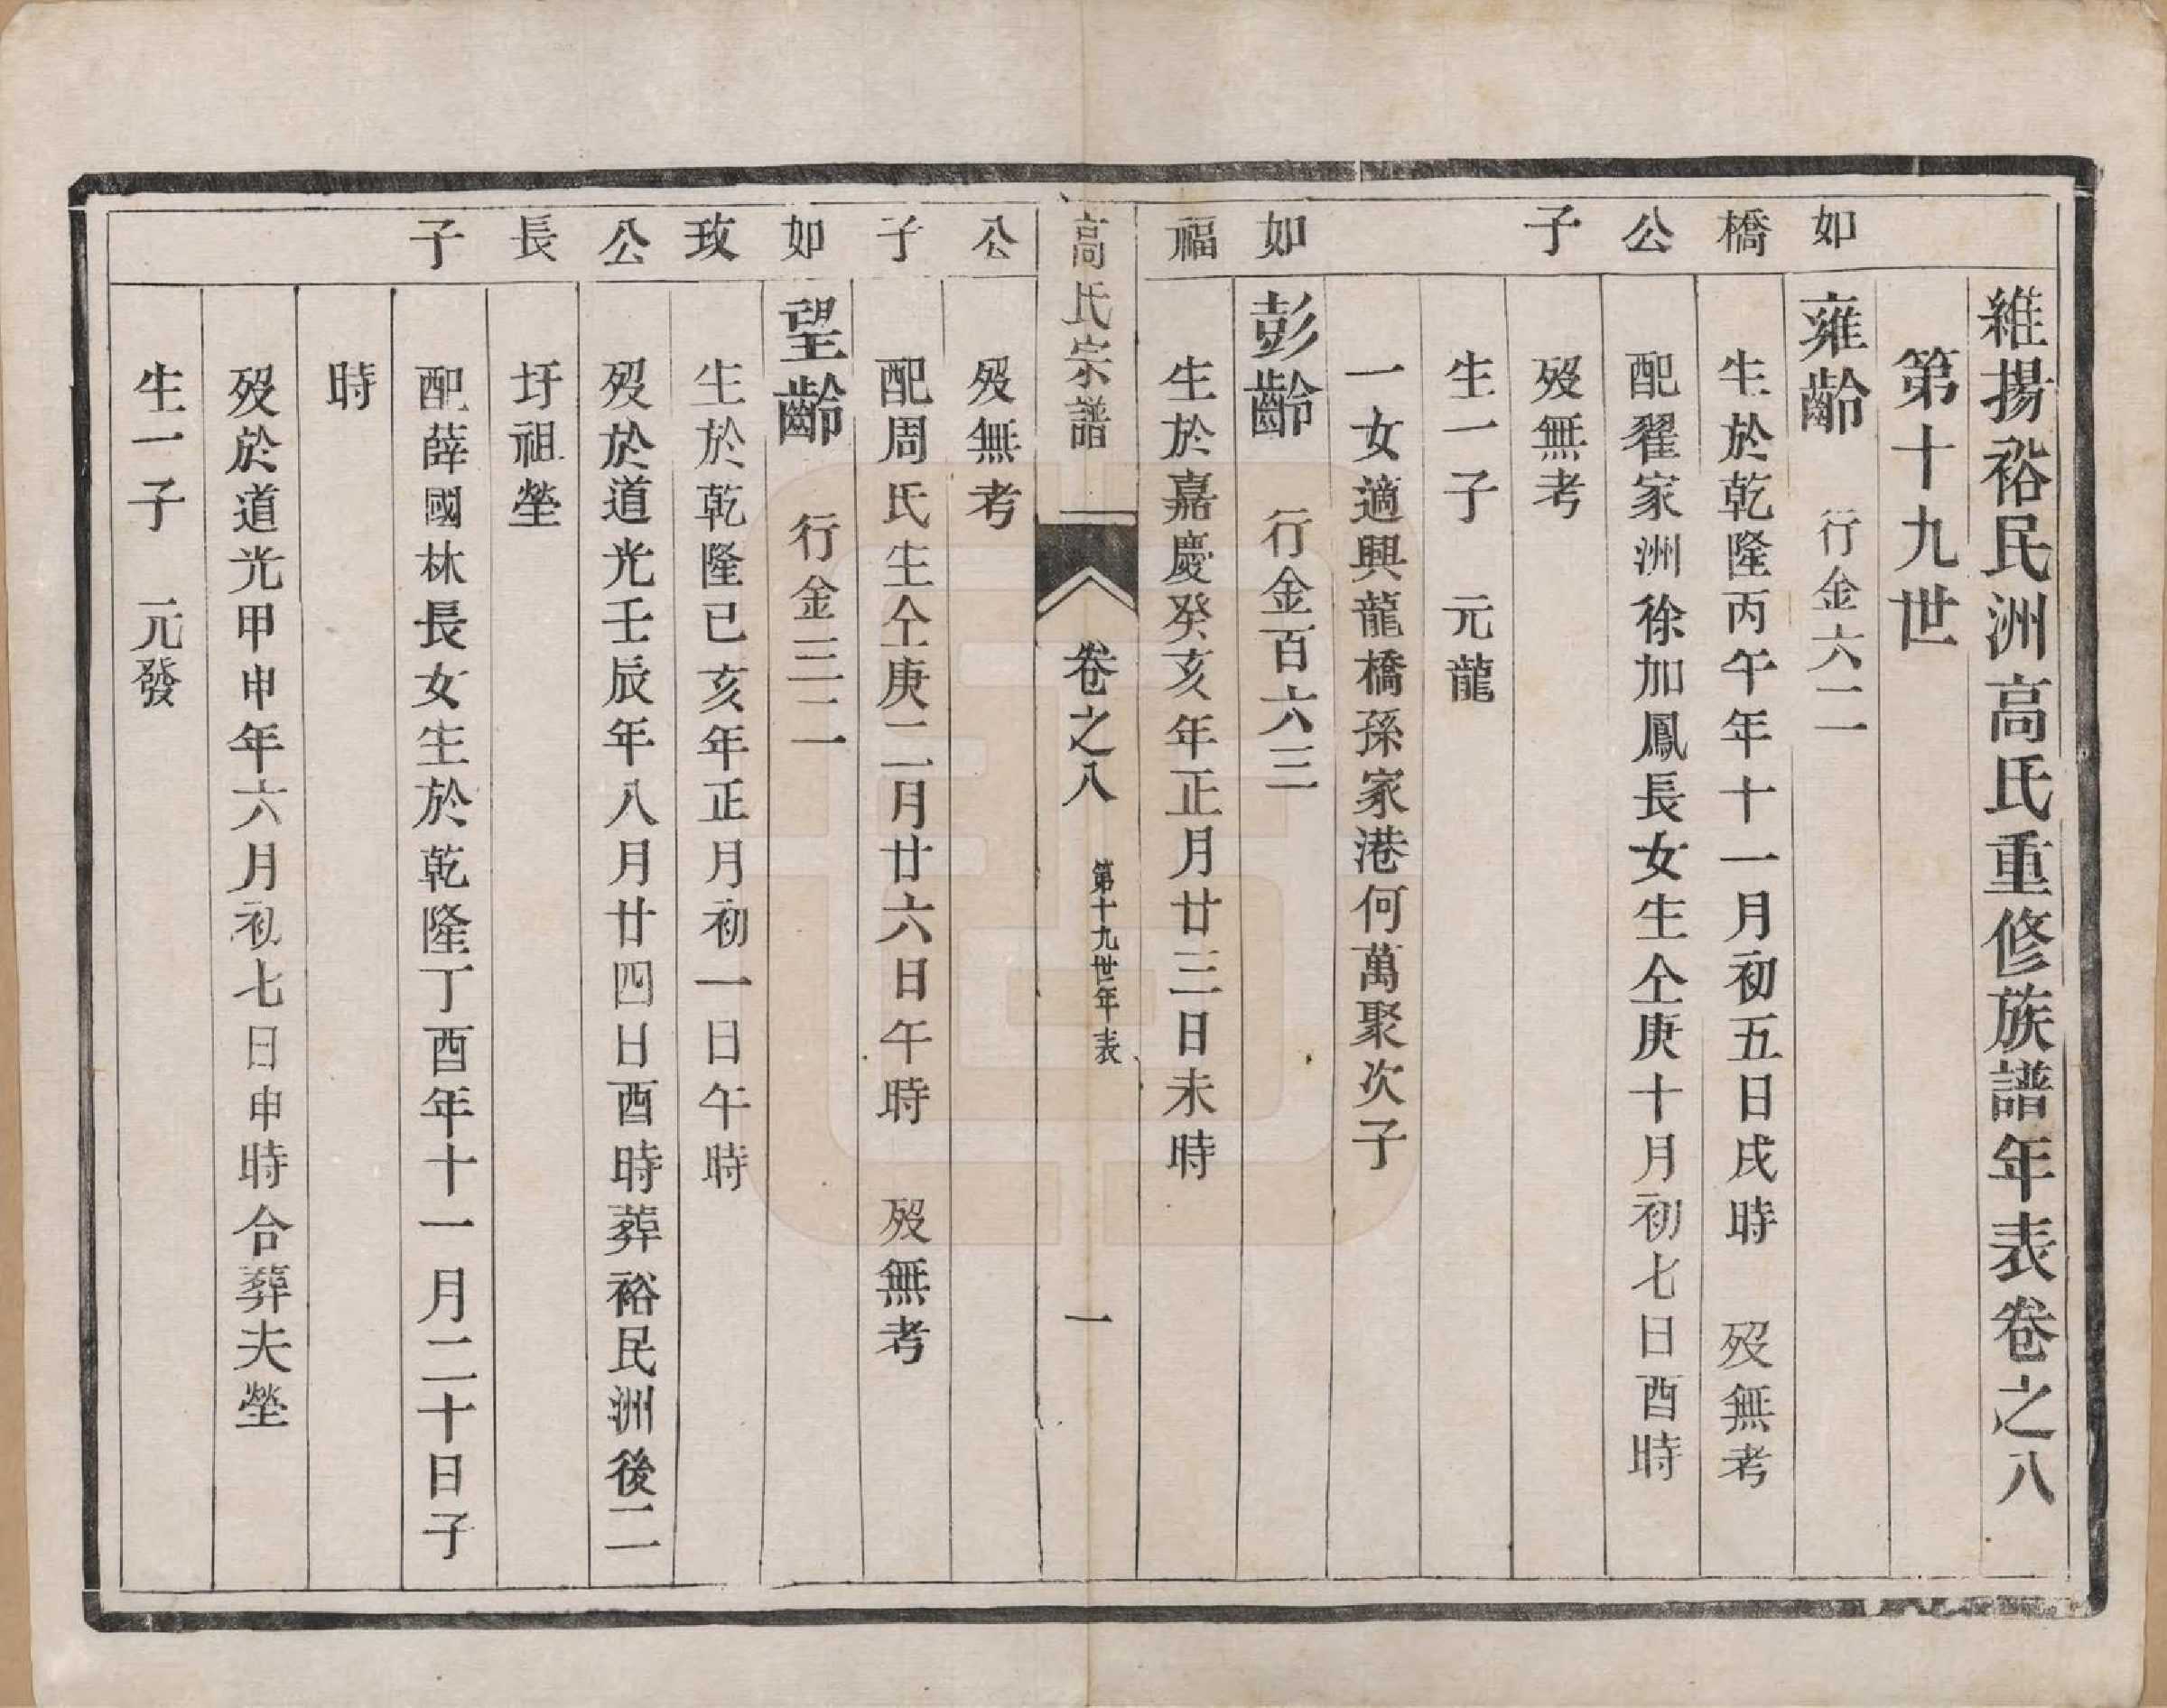 維揚裕民洲高氏重修族譜年表卷之八
第十九世
如橋公子
雍齡 行金六二
生於乾隆丙午年十一月初五日戌時 歿無考
配翟家洲徐加鳳長女生仝庚十月初七日酉時
歿無考
生一子 元龍
一女適興龍橋孫家港何萬聚次子
如福公子
彭齡 行金百六三
生於嘉慶癸亥年正月廿三日未時
高氏宗譜 卷之八 第十九世年表 一
歿無考
配周氏生仝庚二月廿六日午時 歿無考
如玫公長子
望齡 行金三二
生於乾隆已亥年正月初一日午時
歿於道光壬辰年八月廿四日酉時葬裕民洲後二
圩祖塋
配薛國林長女生於乾隆丁酉年十一月二十日子
時
歿於道光甲申年六月初七日申時合葬夫塋
生一子 元發